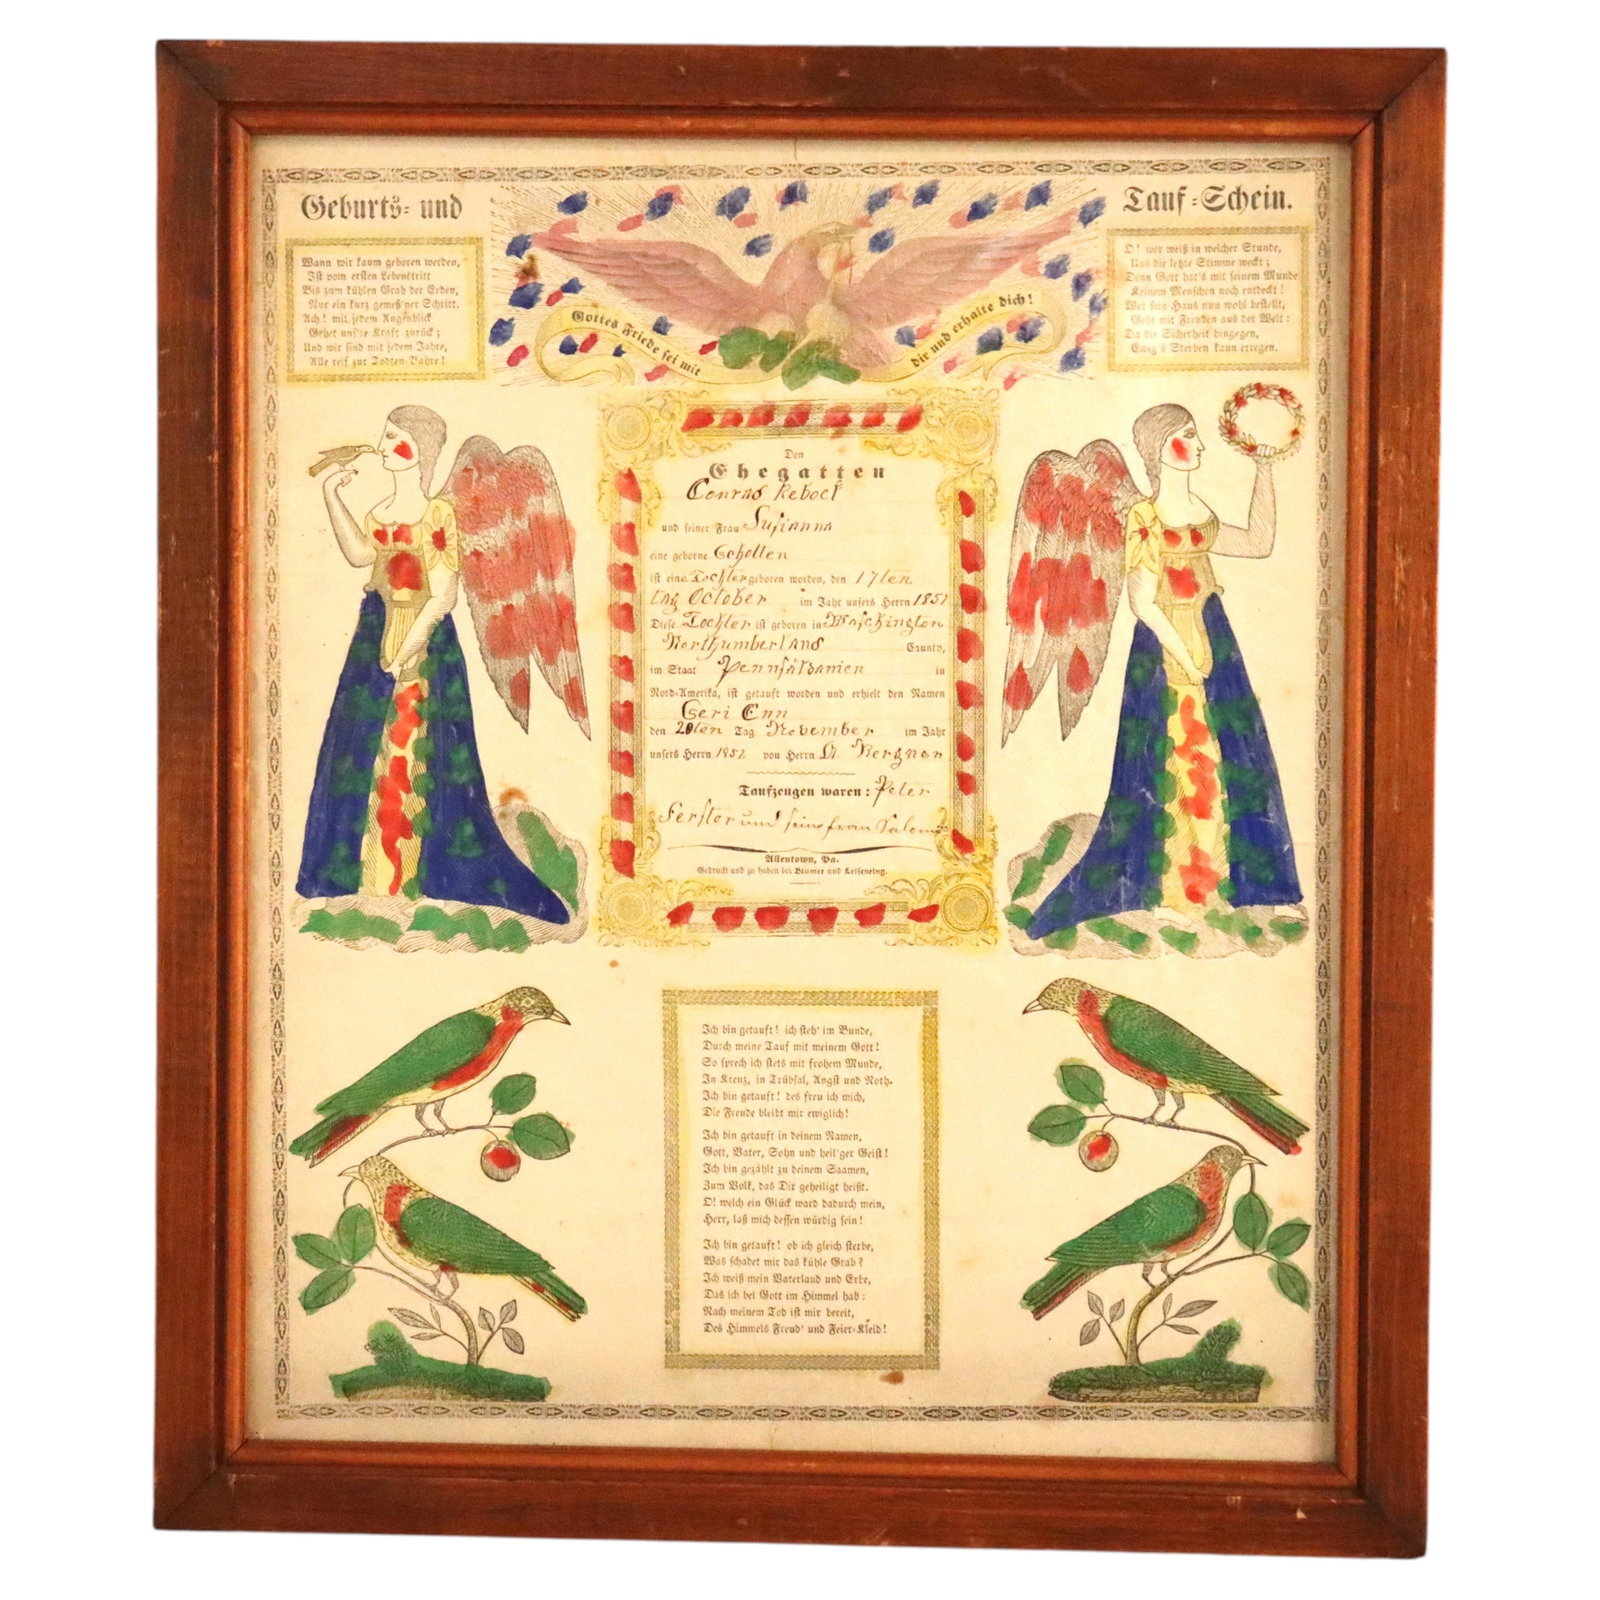 Geburts- und
Tauf-Schein.
Wann wir kaum geboren werden,
Ist vom ersten Lebenstritt
Bis zum kühlen Grab der Erden,
Nur ein kurz gemeß'ner Schritt.
Ach! mit jedem Augenblick
Gehet unsre Kraft zurück;
Und wir sind mit jedem Jahre,
Alle reif zur Todten-Bahre!
Gottes Friede sei mit
dir und erhalte dich!
O! wer weiß in welcher Stunde,
Uns die letzte Stimme weckt;
Denn Gott hat's mit seinem Munde
Keinem Menschen noch entdeckt!
Wer sein Haus nun wohl bestellt,
Geht mit Freuden aus der Welt:
Da die Sicherheit hingegen,
Ewig's Sterben kann erregen.
Den
Ehegatten
Conrad Rebock
und seiner Frau Susianna
eine geborne
ist eine Tochter geboren worden, den 17ten
tag October im Jahr unsers Herrn 1857
Diese Tochter ist geboren in Waschington
Northumberland County,
im Staat Pennsilvanien in
Nord-Amerika, ist getauft worden und erhielt den Namen
den Tag November im Jahr
unsers Herrn 1857 von Herrn
Taufzeugen waren: Peter
Ferster und seine frau
Allentown, Pa.
Gedruckt und zu haben bei Blumer und Leisenring.
Ich bin getauft! ich steh' im Bunde,
Durch meine Tauf mit meinem Gott!
So sprech ich stets mit frohem Munde,
In Kreuz, in Trübsal, Angst und Noth.
Ich bin getauft! des freu ich mich,
Die Freude bleibt mir ewiglich!
Ich bin getauft in deinem Namen,
Gott, Vater, Sohn und heil'ger Geist!
Ich bin gezählt zu deinem Saamen,
Zum Volk, das Dir geheiligt heißt.
O! welch ein Glück ward dadurch mein,
Herr, laß mich dessen würdig sein!
Ich bin getauft! ob ich gleich sterbe,
Was schadet mir das kühle Grab?
Ich weiß mein Vaterland und Erbe,
Das ich bei Gott im Himmel hab:
Nach meinem Tod ist mir bereit,
Des Himmels Freud' und Feier-Kleid!